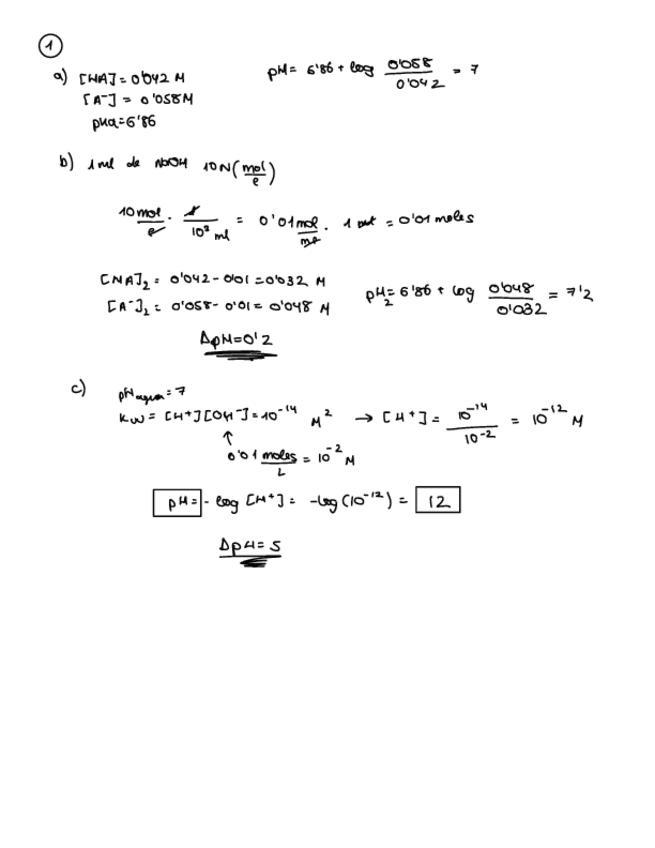 1
a) [HA] = 0'042 M
pH = 6'86 + log 0'058/0'042 = 7
[A-] = 0'058 M
pKa = 6'86
b) 1 ml de NaOH 10N (mol/l)
10 mol/l · 1/10³ ml = 0'01 mol/ml · 1 ml = 0'01 moles
[HA]₂ = 0'042 - 0'01 = 0'032 M
[A-]₂ = 0'058 - 0'01 = 0'048 M
pH₂ = 6'86 + log 0'048/0'032 = 7'2
ΔpH = 0'2
c) pH agua = 7
Kw = [H+][OH-] = 10⁻¹⁴ M² → [H+] = 10⁻¹⁴/10⁻² = 10⁻¹² M
↑
0'01 moles/L = 10⁻² M
pH = - log [H+] = -log (10⁻¹²) = 12
ΔpH = 5